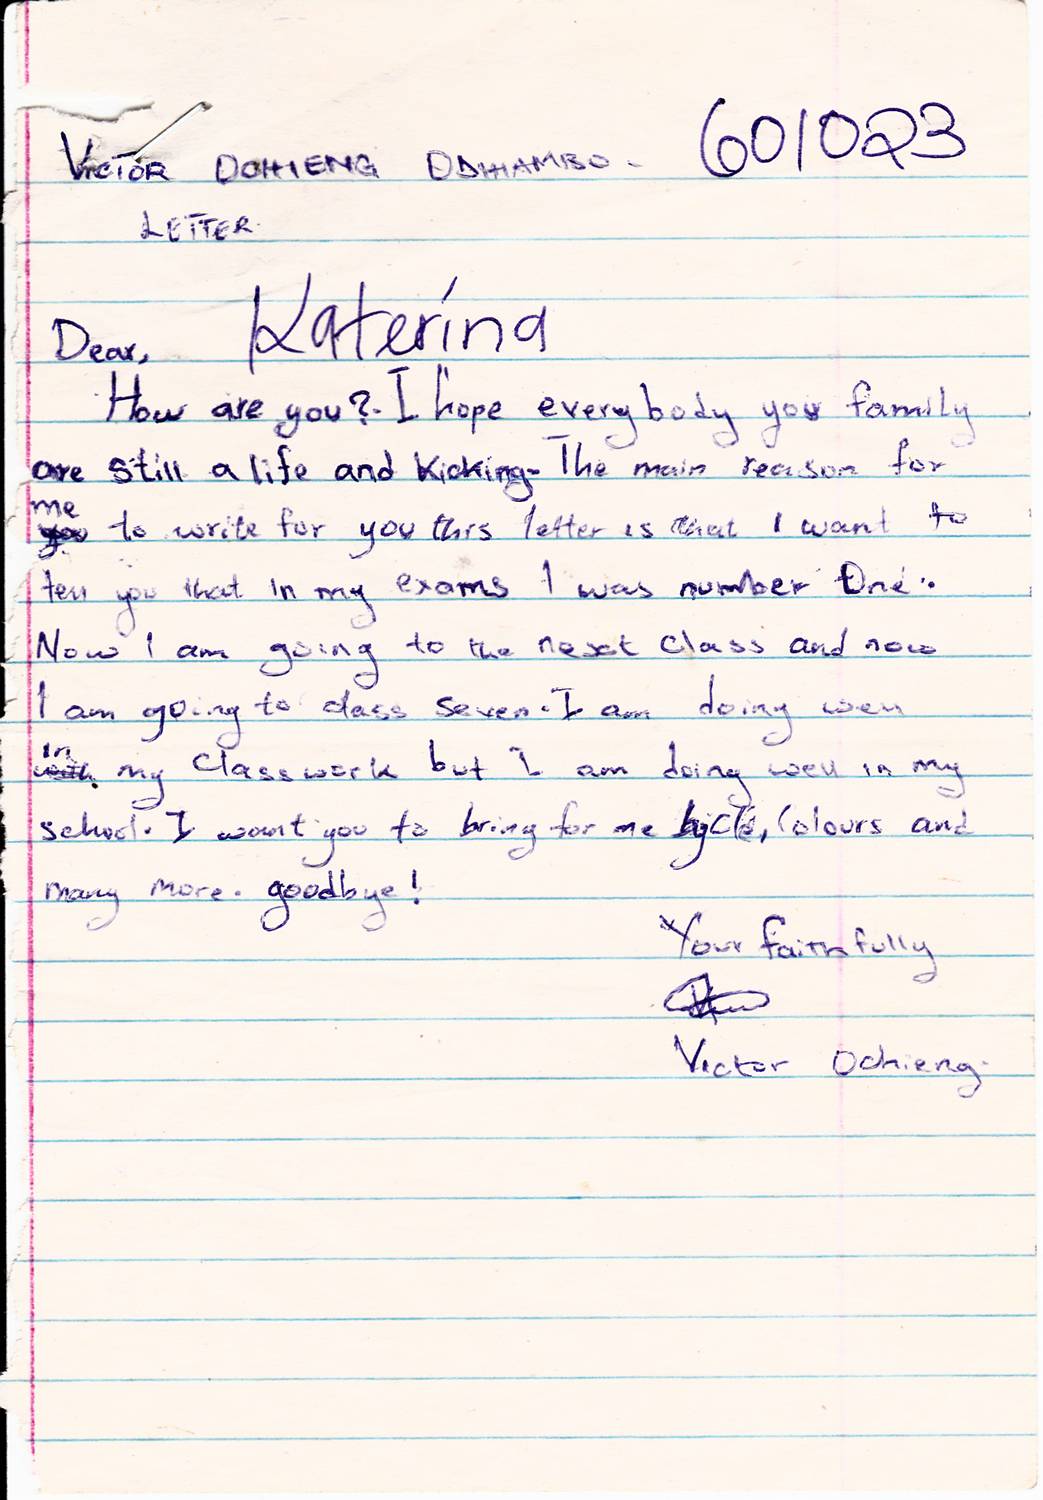 VICTOR OCHIENG ODHIAMBO. 601023
LETTER.
Dear, Katerina
How are you?. I hope everybody you family
are still a life and kicking. The main reason for
me
you to write for you this letter is that I want to
tell you that in my exams I was number One.
Now I am going to the nesxt class and now
I am going to class seven. I am doing well
in
with my classwork but I am doing well in my
school. I want you to bring for me bycle, Colours and
many more. goodbye!
Your faithfully
Victor Ochieng.